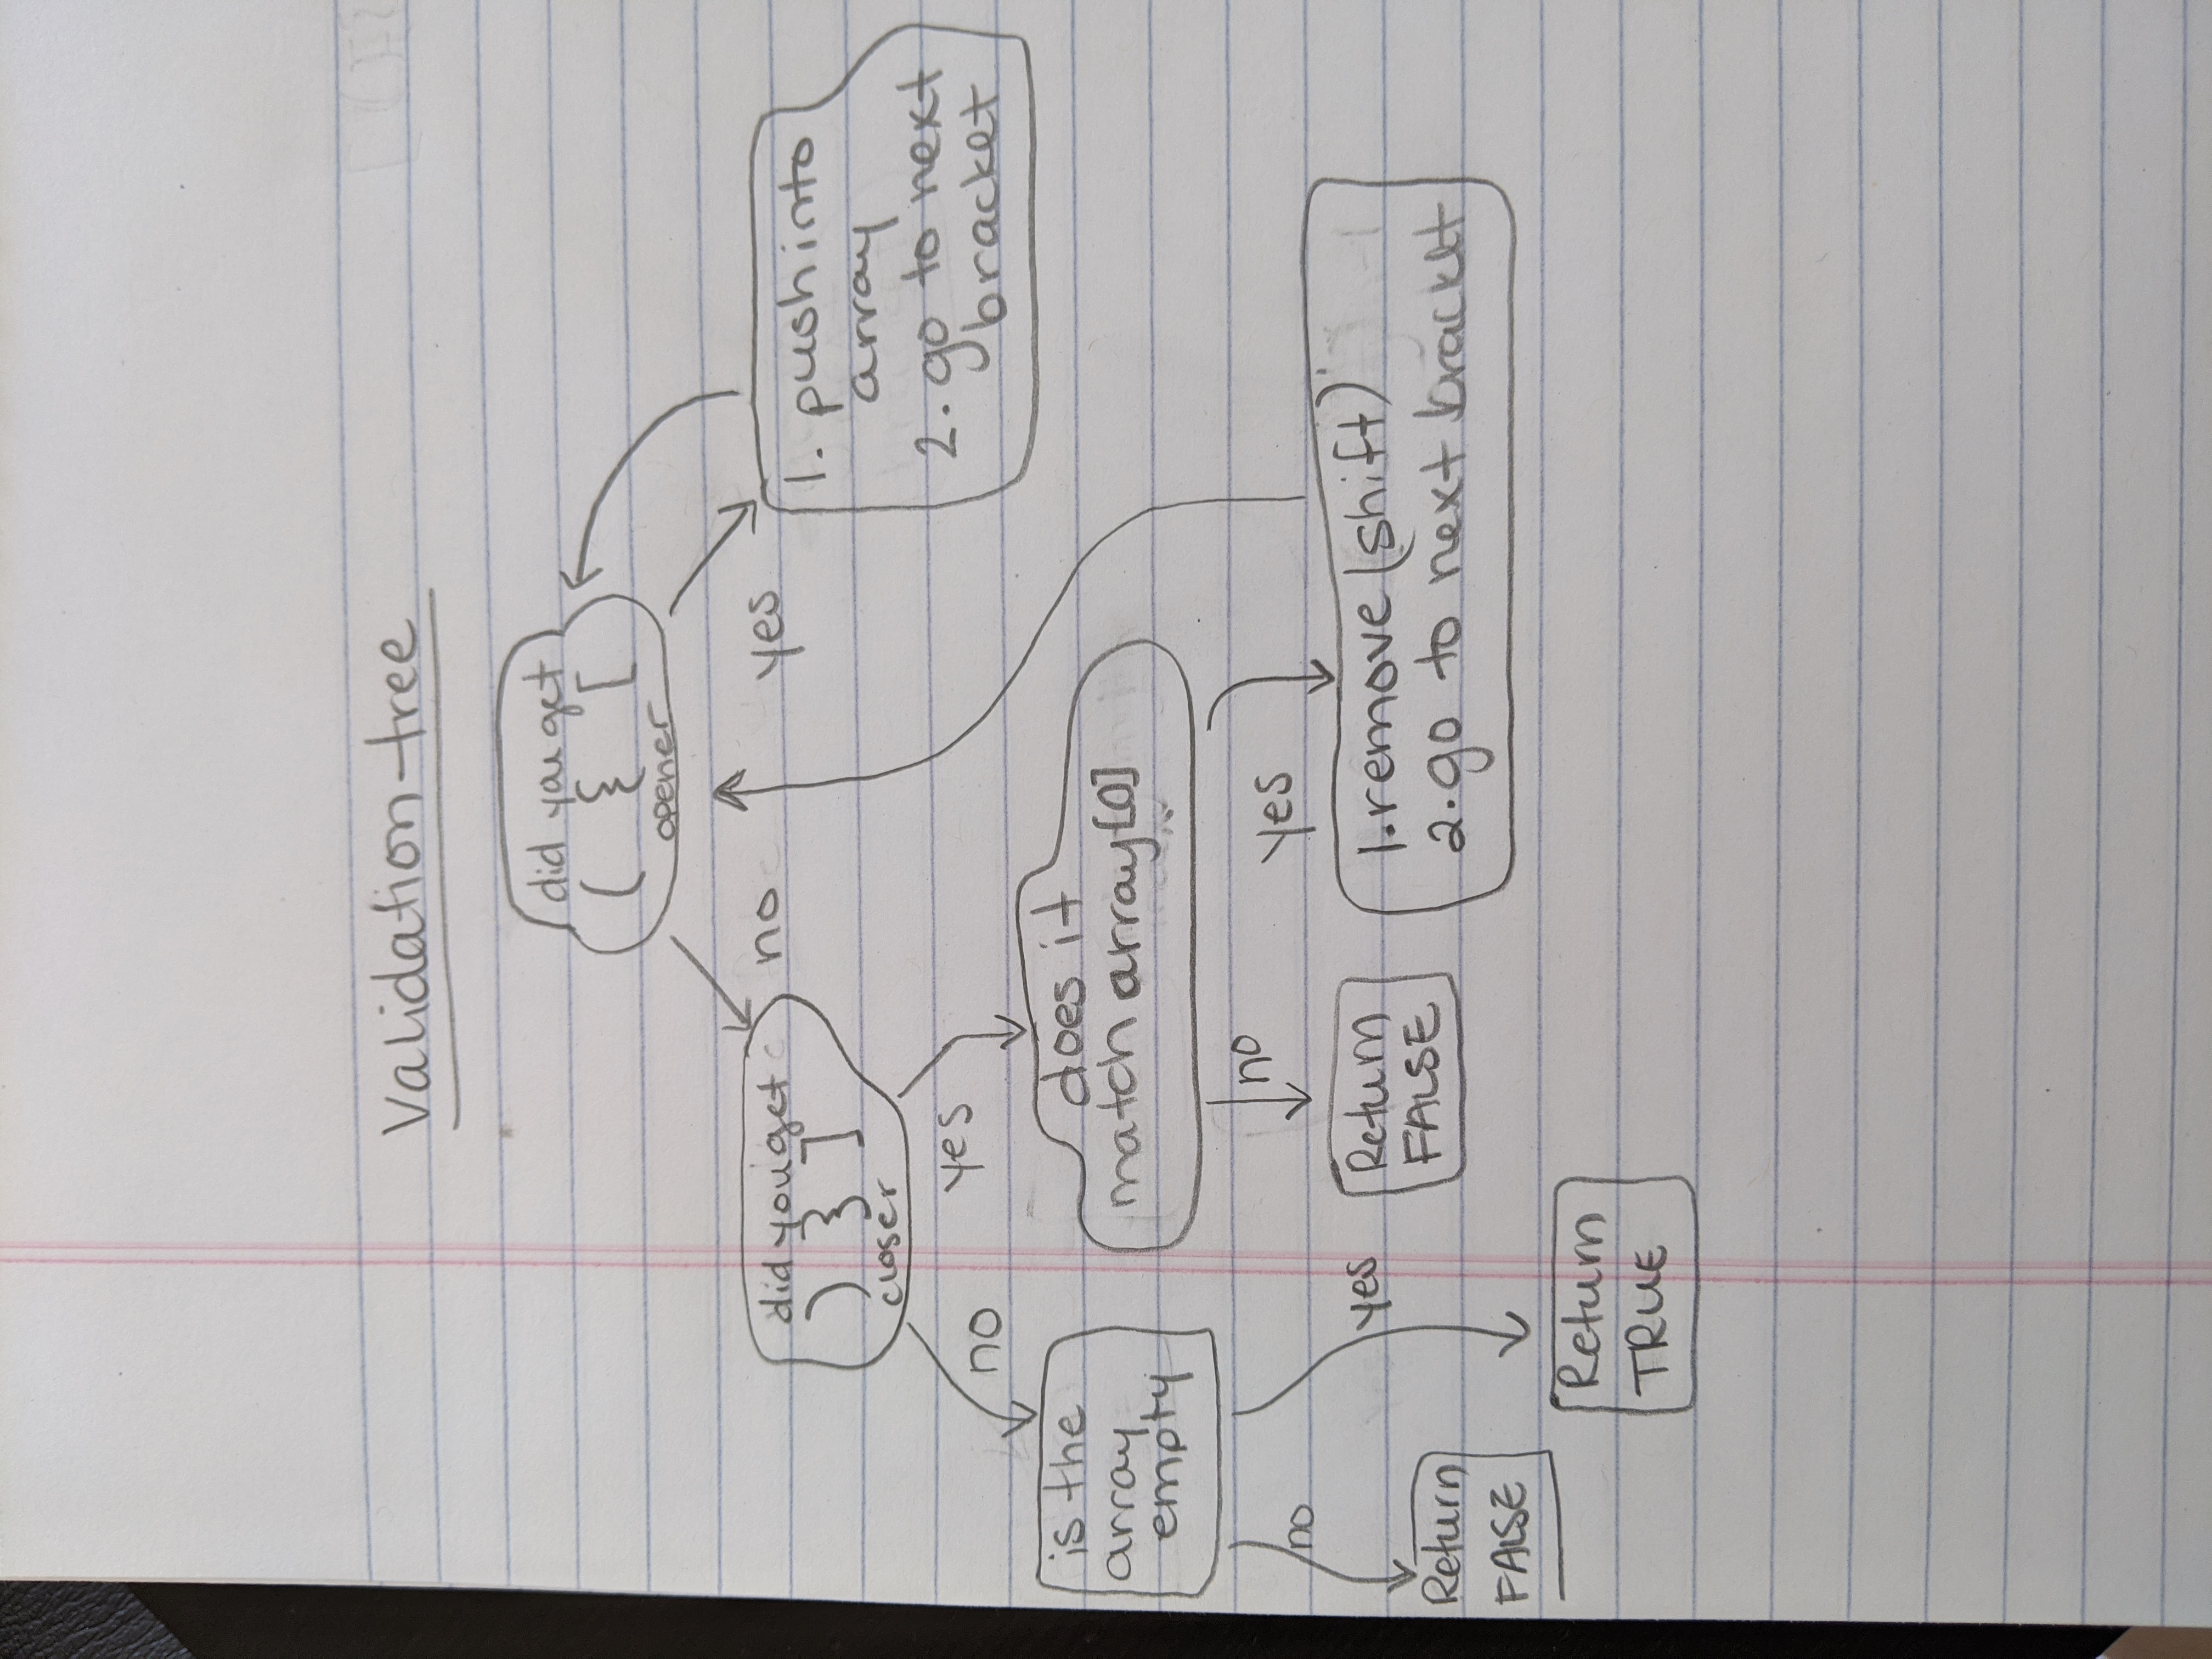 Validation tree
did you get
( { [
opener
no
yes
did you get
) } ]
closer
1. push into
array
2. go to next
bracket
no
yes
is the
array
empty
does it
match array[0]
no
yes
no
yes
Return
FALSE
Return
TRUE
Return
FALSE
1. remove (shift)
2. go to next bracket